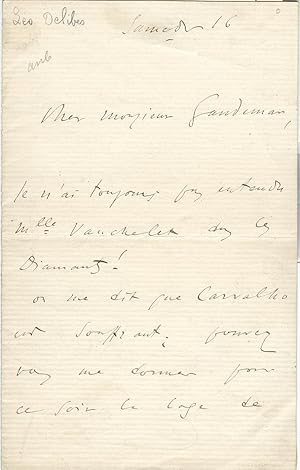 Leo Delibes
Samedi 16
Cher Monsieur Gandemar,
Je n'ai toujours pas entendu
Mlle Vauchelet dans les
Diamants!
on me dit que Carvalho
est souffrant; pouvez
vous me donner pour
ce soir la loge de